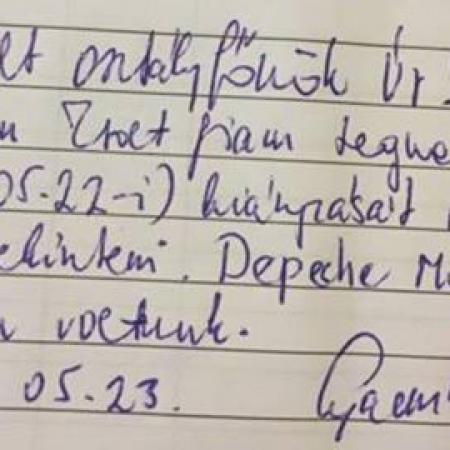 lt osztályfőnök Úr
Zsolt fiam tegna
05.22-i) hiányzásait
tekinteni. Depeche M
voltunk.
05.23.